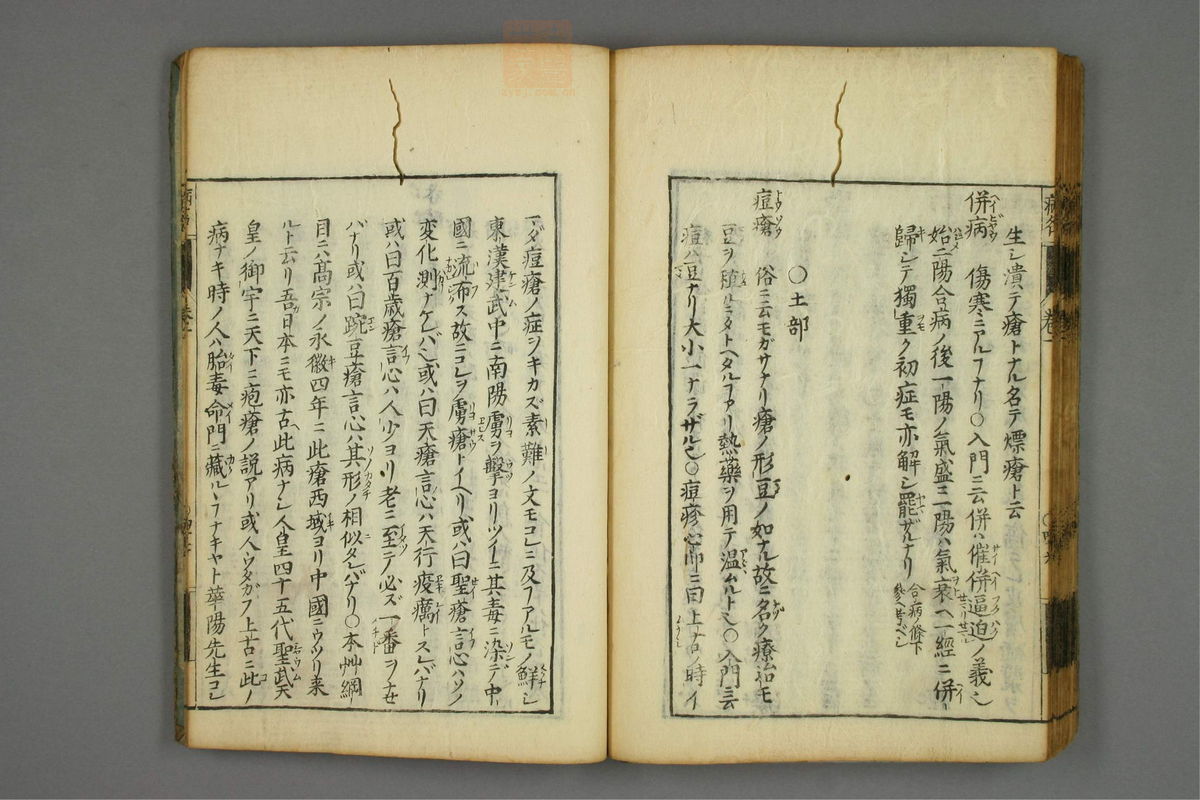 生シ潰テ瘡トナル名テ熛瘡ト云
併病 傷寒ニアルフナリ〇入門ニ云併ハ催併逼迫ノ義也
始メ二陽合病ノ後一陽ノ氣盛ニ一陽ハ氣衰ヘ一經ニ併
歸シテ獨重ク初症モ亦解シ罷ザルナリ 合病ノ條下参ヘ考ベシ
〇土部
痘瘡 俗ニ云モガサナリ瘡ノ形豆ノ如ナル故ニ名ク療治モ
豆ヲ種ルニタトヘタルフアリ熱藥ヲ用テ温ムルト也〇入門ニ云
痘ハ豆ナリ大小一ナラザル也〇痘疹心印ニ曰上古ノ時イ
マダ痘瘡ノ症ヲキカズ素難ノ文モコレニ及フアルモノ鮮シ
東漢建武中ニ南陽虜ヲ擊ヨリツイニ其毒ニ染テ中
國ニ流布ス故ニコレヲ虜瘡トイヘリ或ハ曰聖瘡言心ハソノ
変化測ナケレバ也或ハ曰天瘡言心ハ天行疫癘トスレバナリ
或ハ曰百歳瘡言心ハ人少ヨリ老ニ至テ必ズ一番ヲナセ
バナリ或ハ曰豌豆瘡言心ハ其形ノ相似タレバナリ〇本艸綱
目ニ高宗ノ永徽四年ニ此瘡西域ヨリ中國ニウツリ来
ルト云リ吾日本ニモ亦古ヘ此病ナシ人皇四十五代聖武天
皇ノ御宇ニ天下ニ疱瘡ノ説アリ或人ウタガフ上古ニ此ノ
病ナキ時ノ人ハ胎毒命門ニ藏ルヽフナキヤト華陽先生コレ